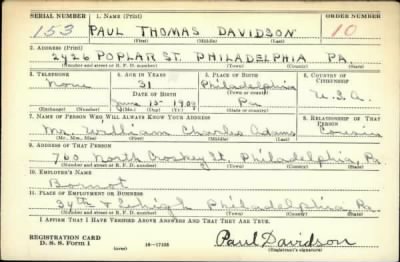 SERIAL NUMBER 1. NAME (Print) ORDER NUMBER
153 PAUL THOMAS DAVIDSON 10
(First) (Middle) (Last)
2. ADDRESS (Print)
2426 POPLAR ST. PHILADELPHIA PA.
(Number and street or R. F. D. number) (Town) (County) (State)
3. TELEPHONE 4. AGE IN YEARS 5. PLACE OF BIRTH 6. COUNTRY OF CITIZENSHIP
None 31 Philadelphia U.S.A.
DATE OF BIRTH (Town or county)
June 10 1909 Pa
(Mo.) (Day) (Yr.) (State or country)
7. NAME OF PERSON WHO WILL ALWAYS KNOW YOUR ADDRESS 8. RELATIONSHIP OF THAT PERSON
Mr. William Charles Adams Cousin
(Mr., Mrs., Miss) (First) (Middle) (Last)
9. ADDRESS OF THAT PERSON
760 North Croskey St. Philadelphia, Pa
(Number and street or R. F. D. number) (Town) (County) (State)
10. EMPLOYER'S NAME
11. PLACE OF EMPLOYMENT OR BUSINESS
34th & Lehigh Philadelphia Pa
(Number and street or R. F. D. number) (Town) (County) (State)
I AFFIRM THAT I HAVE VERIFIED ABOVE ANSWERS AND THAT THEY ARE TRUE.
REGISTRATION CARD
D. S. S. Form 1 (over) 16—17105 Paul Davidson
(Registrant's signature)